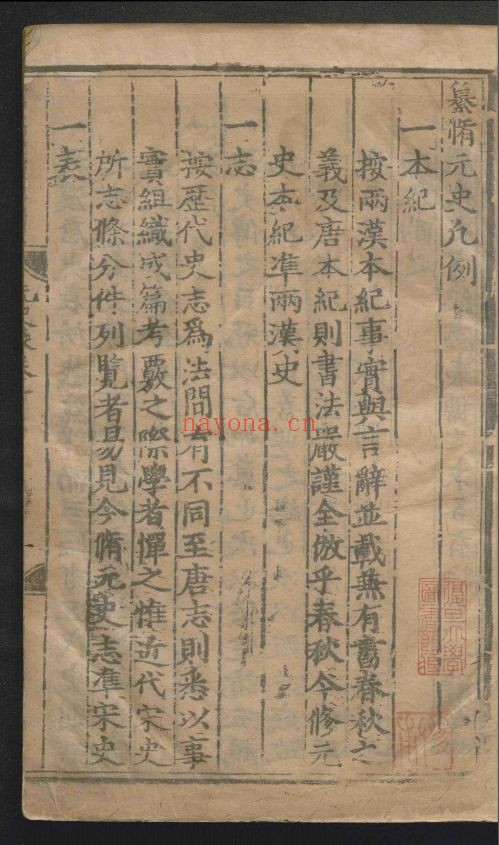 纂脩元史凡例
一本紀
按兩漢本紀事實與言辭並載蕪有書春秋之
義及唐本紀則書法嚴謹全倣乎春秋今修元
史本紀准兩漢史
一志
按歷代史志爲法間有不同至唐志則悉以事
實組織成篇考覈之際學者憚之惟近代宋史
所志條分件列覽者易見今脩元史志准宋史
一表
nayona.cn